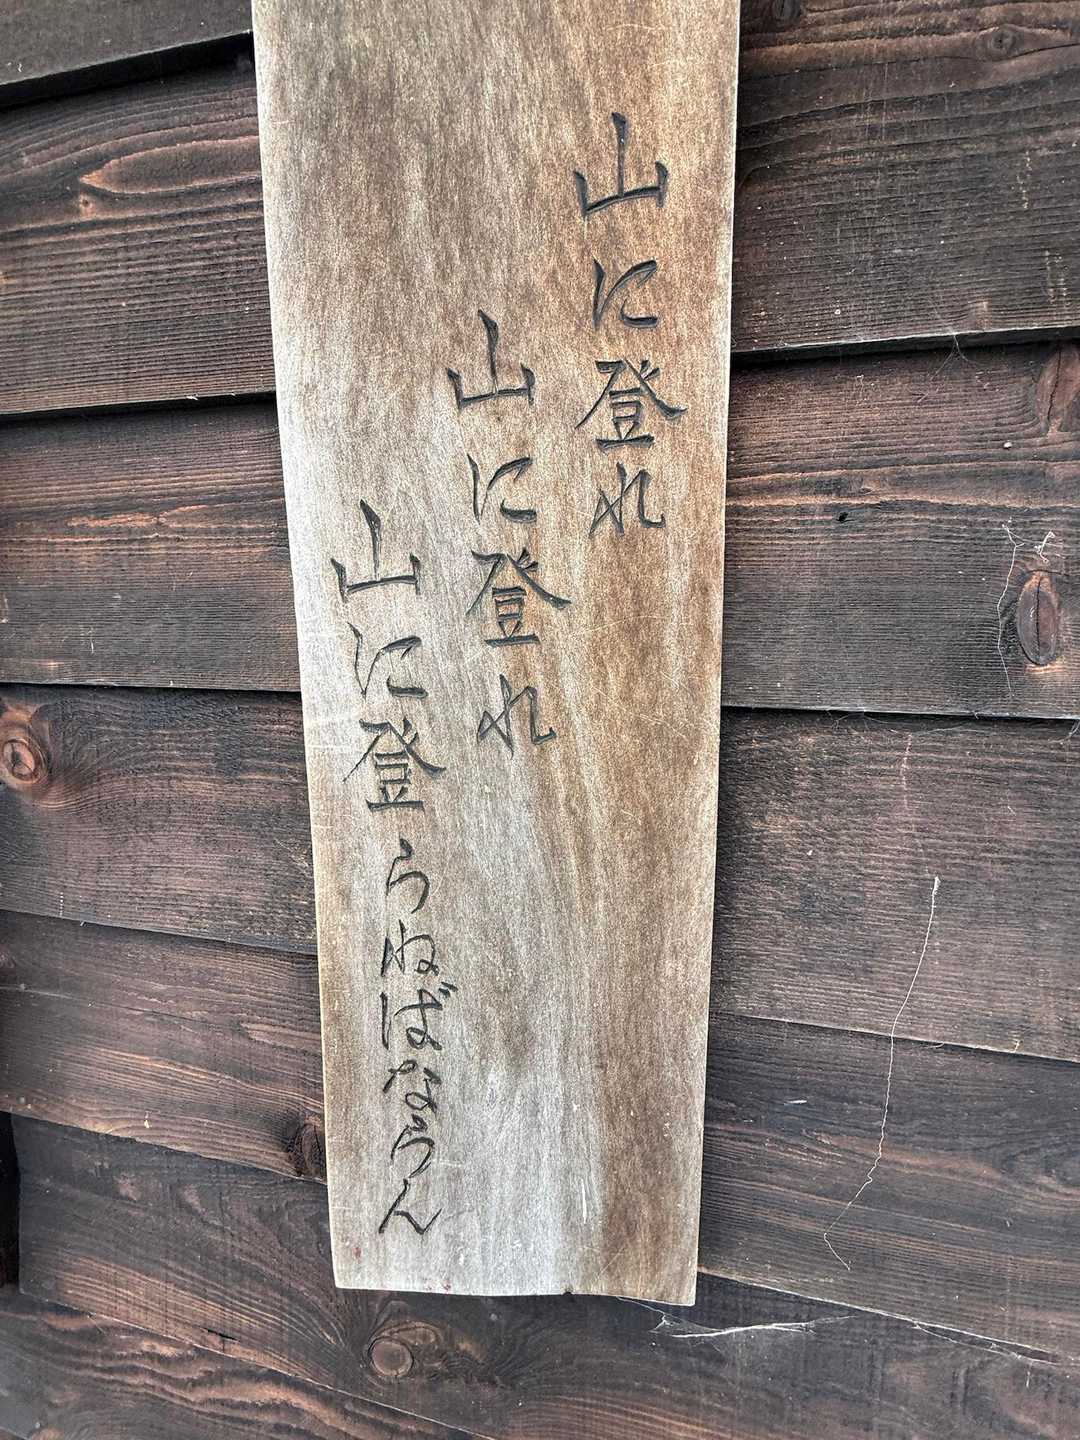 山に登れ
山に登れ
山に登らねばならん